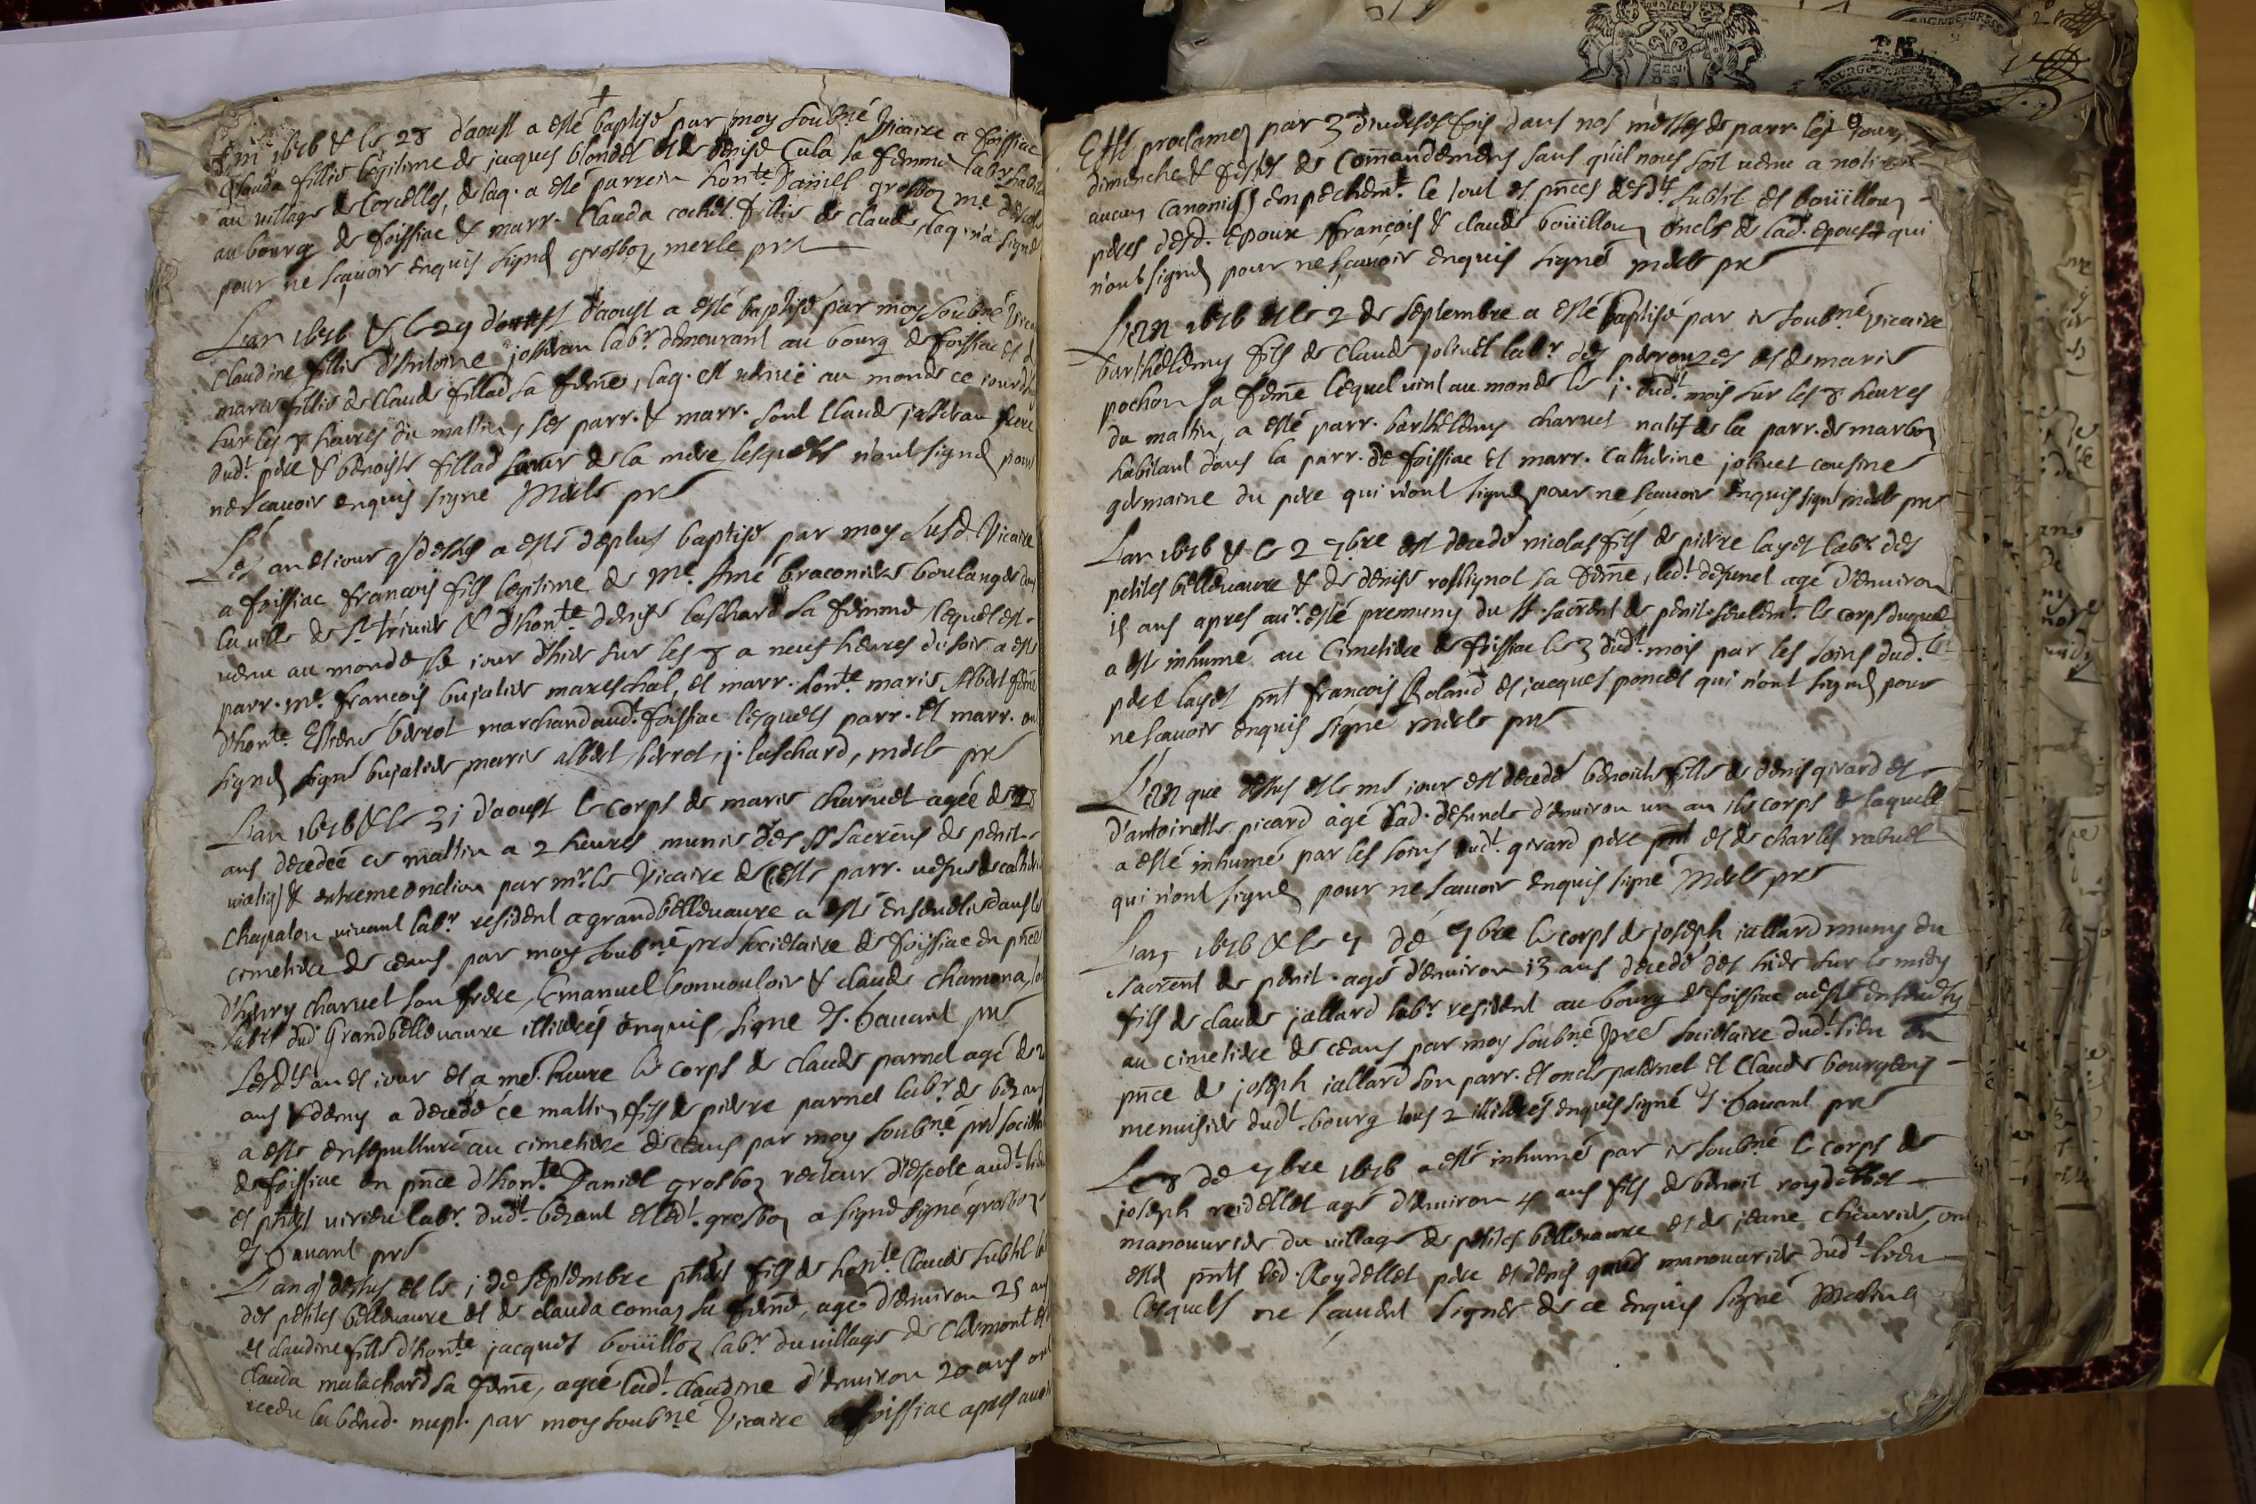 l'an 1676 & le 28 d'aoust a esté baptisé par moy soubné vicaire a foissiac
Clauda fillie legitime de jacques blondel et de denise Cula sa femme labr habit
au village de Corcelles, de laq. a esté parrein honte Daniel grosboz me d'escole
au bourg de foissiac & marr. Clauda cochet fillie de claude, laq. n'a signé
pour ne scavoir enquis signé grosboz, merle pre
L'an 1676 & le 29 d'aoust a esté baptisé par moy soubné vicaire
Claudine fillie d'Antoine josserau labr demeurant au bourg de foissiac et de
marie fillie de Claude fillad sa feme, laq. est venüe au monde ce jourd'huy
sur les 8 heures du mattin, ses parr. & marr. sont Claude josserau frere
dudt père & benoiste fillad soeur de la mere lesquels n'ont signé pour
ne scavoir enquis signé Merle pre
Les an et jour q/ dessus a esté deplus baptisé par moy susd. vicaire
a foissiac francois fils legitime de Me Amé braconier boulanger dans
la ville de St trivier & d'honte denise luschard sa femme lequel est
venu au monde le jour d'hier sur les 8 a neuf heures du soir a esté
parr. Me francois bujatier mareschal, et marr. honte marie Albert feme
d'honte Estiene berrot marchand audt foissiac lesquels parr. et marr. ont
signé signé bujatier, marie albert, berrot, j. luschard, merle pre
L'an 1676 & le 31 d'aoust le corps de marie charuet agée de
ans decedée ce mattin a 2 heures munie des SS sacrens de penit.
viatiq/ & extreme onction par mr le vicaire de cette parr. vefue de
Chapalou vivant labr resident a grandbelleuaure a esté enseuelie dans le
cimetiere de ceans par moy soubné pre societaire de foissiac en pnce
d'henry charuet son frere, Emanuel bonuouloir & claude chamona,
labrs dud grandbelleuaure illiterés enquis, signé T. bauant pre
Lesdts an et jour et a me. heure le corps de claude parnet agé de
ans & demy a decedé ce mattin fils de pierre parnet labr de bezan
a esté ensepulturé au cimetiere de ceans par moy soubné pre societaire
de foissiac en pnce d'honte Daniel grosboz recteur d'escole audt lieu
et vivieu labr dudt bezant et ledt grosboz a signé signé grosboz
T. bauant pre
L'an q/ dessus et le 1 de septembre fils de honte Claude subtil
des petites belleuaure et de clauda comaz sa feme, agé d'enuiron 25 ans
et claudine fille d'honte jacques boüilloz labr du village de Clermont et
Clauda malachard sa feme, agée ladt claudine d'enuiron 20 ans ont
receu la bened. nupt. par moy soubné vicaire a foissiac apres auoir
Esté proclamez par 3 diuerses fois dans nos messes de parr. les jours
dimanche & festes de Commandemens sans qu'il nous soit venu a notice
aucun canoniq/ empechemt le tout es pnces desdts subtil et boüilloun
peres desd. Epoux françois & claude boüilloun oncle de lad. epouse qui
n'ont signé pour ne scauoir enquis signé merle pre
L'an 1676 et le 2 de septembre a esté baptisé par ie soubné vicaire
barthelemy fils de claude joliuet labr des perouzes et de marie
pochon sa feme lequel vint au monde le 1. dudt mois sur les 8 heures
du matin, a esté parr. barthelemy charuet natif de la parr. de marboz
habitant dans la parr. de foissiac et marr. Catherine joliuet cousine
germaine du pere qui n'ont signé pour ne scauoir enquis signé merle pre
L'an 1676 & le 2 7bre est decedé nicolas fils de pierre layet labr des
petites belleuaure & de denise rossignol sa feme, ledt defunct agé d'enuiron
15 ans apres aur esté premuny du St. sacrent de penit. seulemt le corps duquel
a esté inhumé au Cimetiere de foissiac le 3 dudt mois par les soins dud.
pere layet pnt francois Roland et jacques poncet qui n'ont signé pour
ne scauoir enquis signé merle pre
L'an que dessus et le me jour est decedé benoiste fille de denis girard et
d'antoinette picard agé lad. defunde d'enuiron un an le corps de laquelle
a esté inhumé par les soins dudt girard pere pnt et de charles rabuel
qui n'ont signé pour ne scauoir enquis signé Merle pre
L'an 1676 & le 7 de 7bre le corps de joseph jallard muny du
sacrent de penit. agé d'enuiron 13 ans decedé des hier sur le midy
fils de claude jallard labr resident au bourg de foissiac a esté enseuely
au cimetiere de ceans par moy soubné pre societaire dudt lieu en
pnce de joseph jallard son parr. et oncle paternel et Claude bourgeois
menuisier dudt bourg tous 2 illiterés enquis signé T. bauant pre
Le 8 de 7bre 1676 a esté inhumé par ie soubné le corps de
joseph reidellet agé d'enuiron 4 ans fils de benoit roydellet
manouurier du village de petites belleuaure et de jeane cheurier, ont
esté pnts led. Reydellet pere et denis manouurier dudt lieu
lesquels ne sauent signer de ce enquis signé